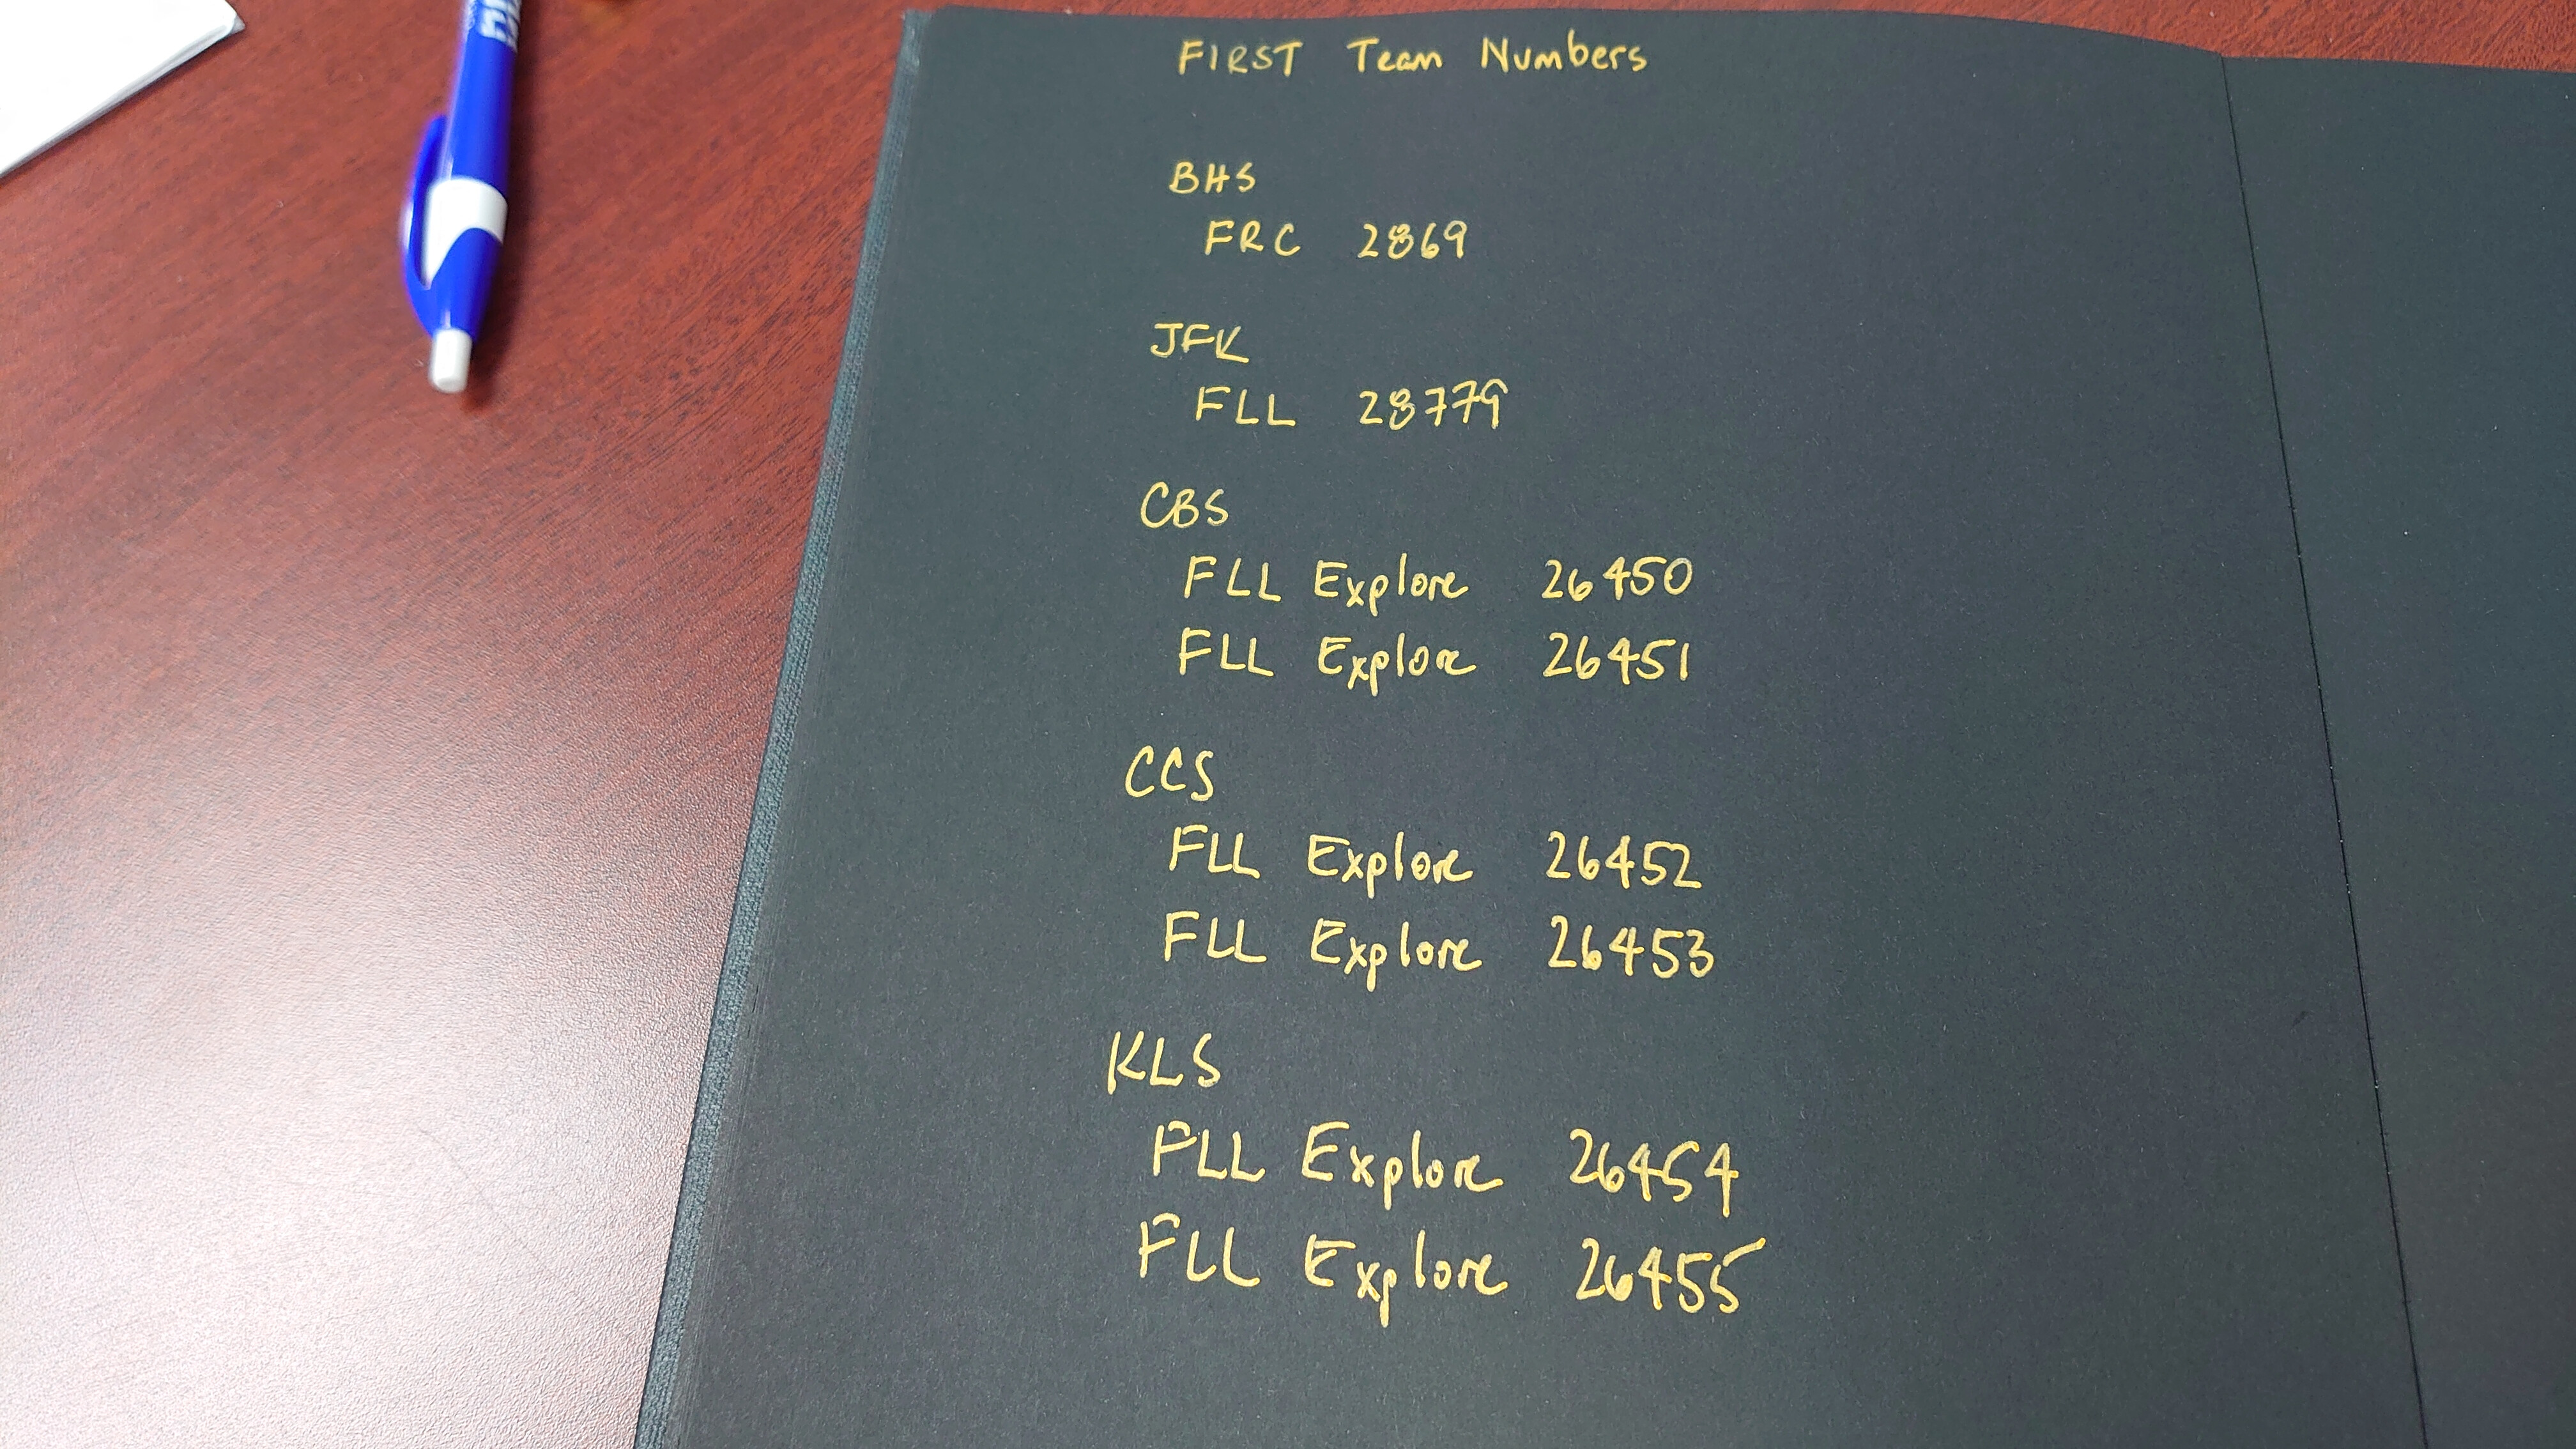 FIRST Team Numbers
BHS
FRC 2869
JFK
FLL 28779
CBS
FLL Explore 26450
FLL Explore 26451
CCS
FLL Explore 26452
FLL Explore 26453
KLS
FLL Explore 26454
FLL Explore 26455